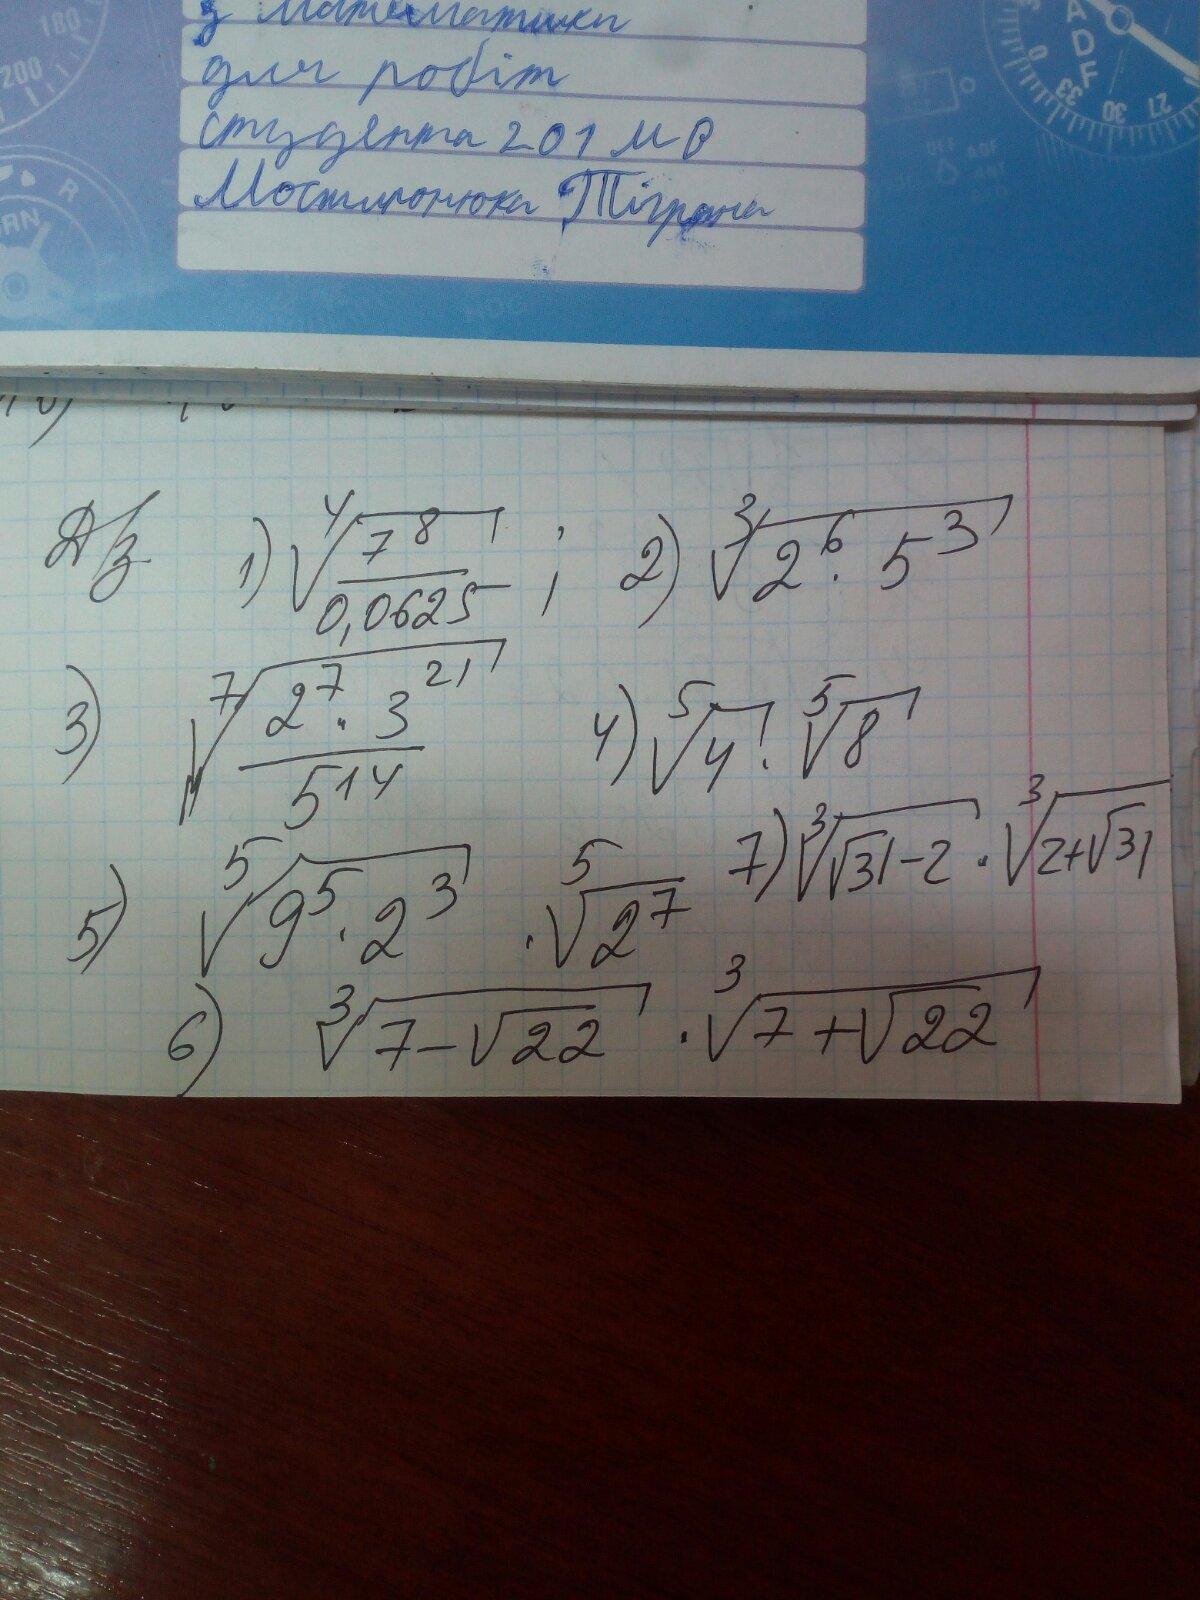 з математики
для робіт
студента 201 М В
Тіграна
180
200
R
A
D
F
0
33
30
27
Д/з 1) ⁴√(7⁸/0,0625) ; 2) ³√(2⁶ · 5³)
3) ⁷√(2⁷ · 3²¹/5¹⁴) 4) ⁵√4 · ⁵√8
5) ⁵√(9⁵ · 2³) · ⁵√(2⁷) 7) ³√(√31 - 2) · ³√(2 + √31)
6) ³√(7 - √22) · ³√(7 + √22)